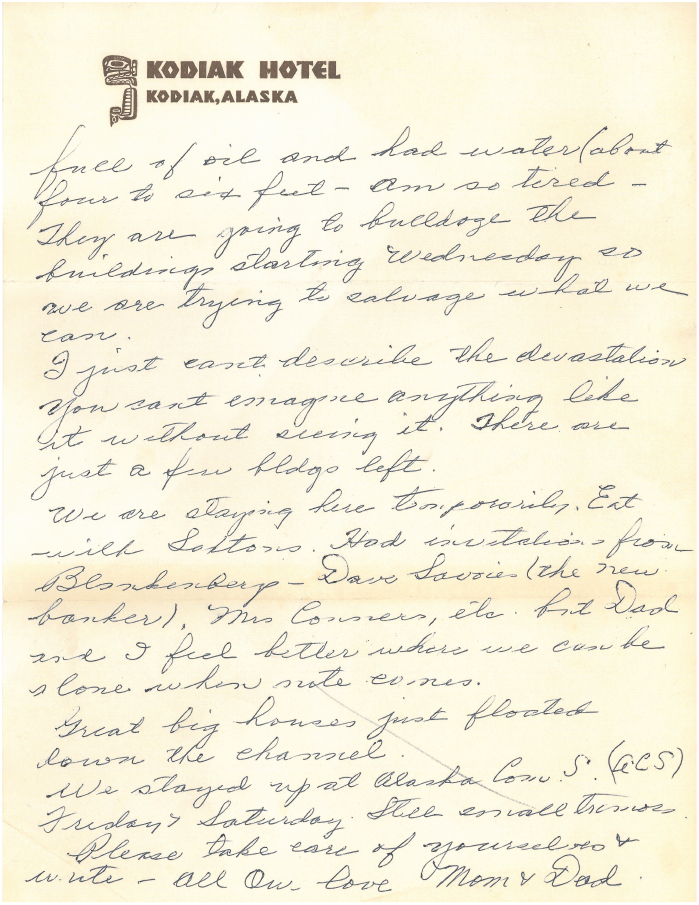 KODIAK HOTEL
KODIAK, ALASKA
full of oil and had water (about
four to six feet - am so tired -
They are going to bulldoze the
buildings starting Wednesday so
we are trying to salvage what we
can.
I just cant describe the devastation
You cant emagine anything like
it without seeing it. There are
just a few bldgs left.
We are staying here temporarily. Eat
with Had invitations from
Blankenberg - Dave Savoies (the new
banker), Mrs Conners, etc. but Dad
and I feel better where we can be
alone when note comes.
Great big houses just floated
down the channel.
We stayed up at Alaska Com. S. (ACS)
Friday & Saturday. Still small tremors.
Please take care of yourselves &
write - All Our love Mom & Dad.